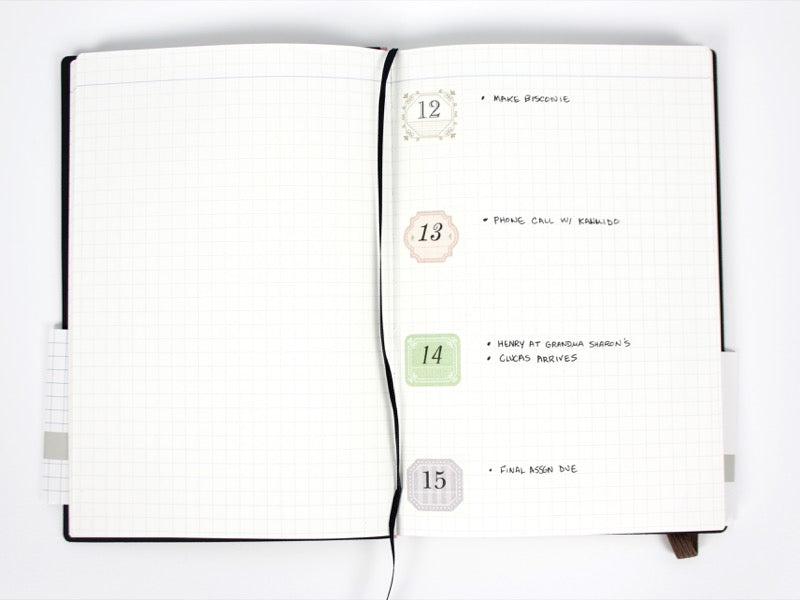 12
• MAKE BISCONIE
13
• PHONE CALL W/ KANMIDO
14
• HENRY AT GRANDMA SHARON'S
• CLUCAS ARRIVES
15
• FINAL ASSGN DUE